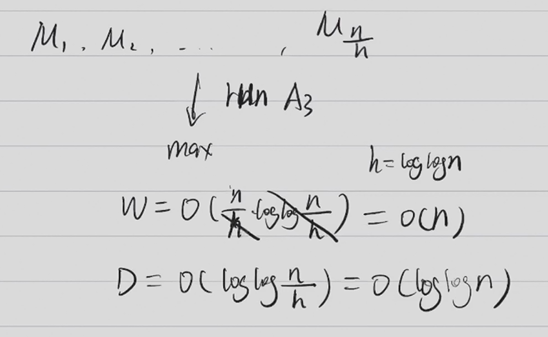 M₁, M₂, ....... , M_{n/h}
↓ run A₃
max
h = loglogn
W = O( n/h · loglog n/h ) = O(n)
D = O( loglog n/h ) = O(loglogn)